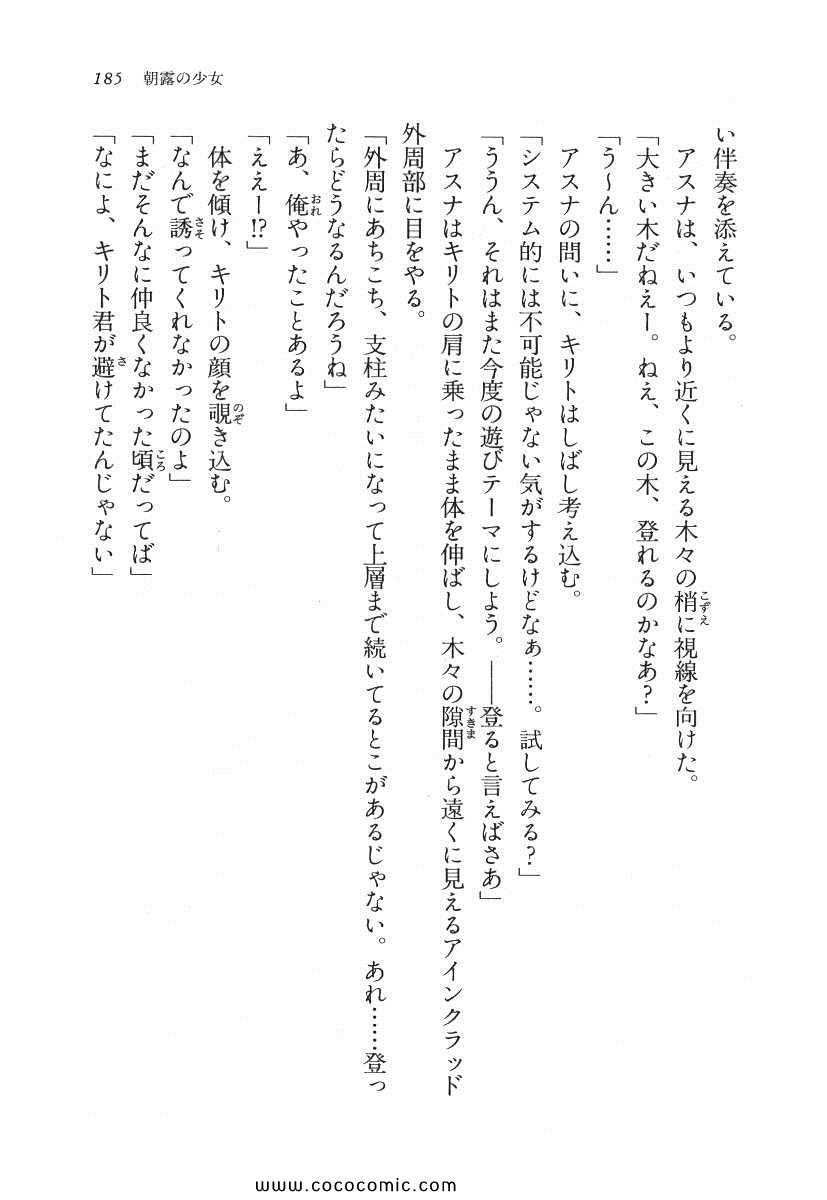 185 朝露の少女
い伴奏を添えている。
アスナは、いつもより近くに見える木々の梢に視線を向けた。
「大きい木だねえー。ねえ、この木、登れるのかなあ?」
「う〜ん……」
アスナの問いに、キリトはしばし考え込む。
「システム的には不可能じゃない気がするけどなぁ……。試してみる?」
「ううん、それはまた今度の遊びテーマにしよう。――登ると言えばさあ」
アスナはキリトの肩に乗ったまま体を伸ばし、木々の隙間から遠くに見えるアインクラッド
外周部に目をやる。
「外周にあちこち、支柱みたいになって上層まで続いてるとこがあるじゃない。あれ……登っ
たらどうなるんだろうね」
「あ、俺やったことあるよ」
「ええー!?」
体を傾け、キリトの顔を覗き込む。
「なんで誘ってくれなかったのよ」
「まだそんなに仲良くなかった頃だってば」
「なによ、キリト君が避けてたんじゃない」
www.cococomic.com